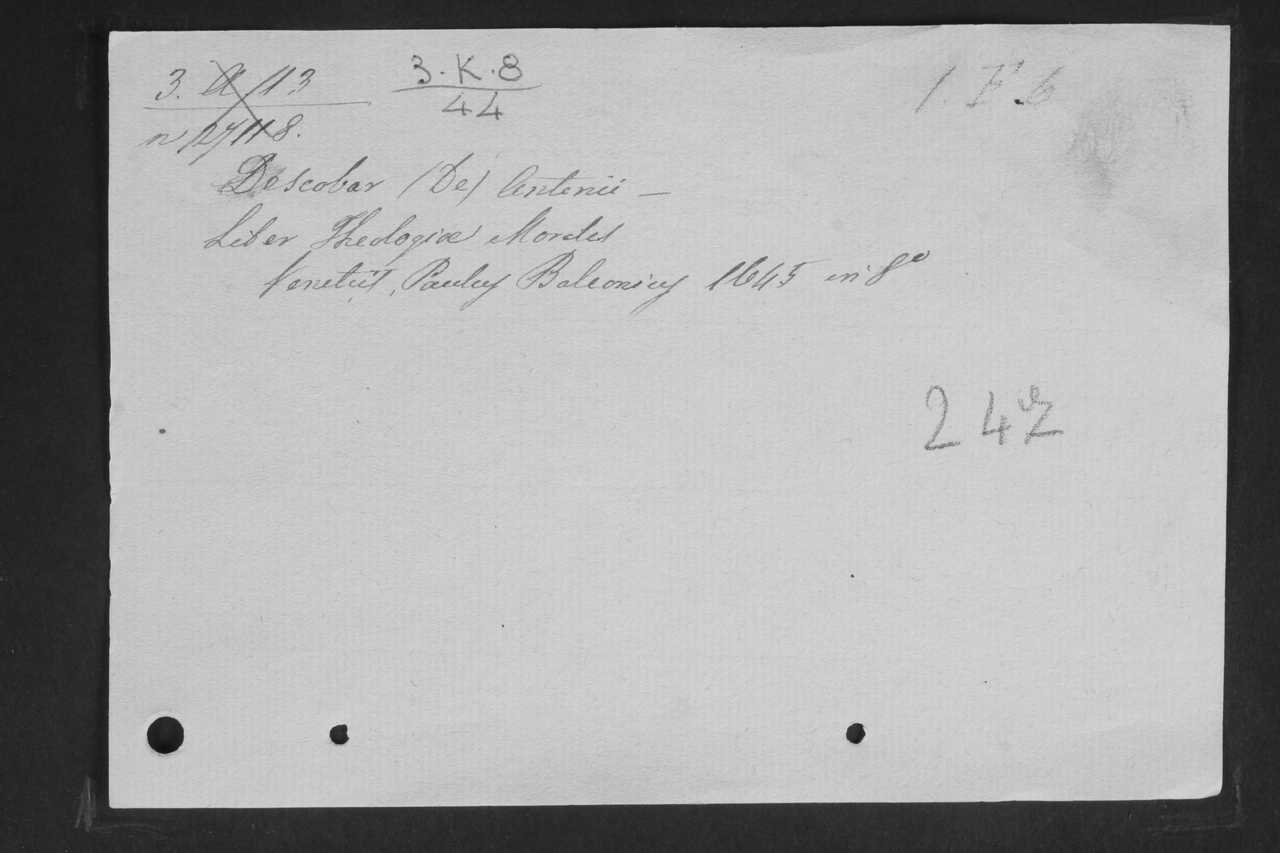 3. A 13
3. K. 8
1. F. 6
44
n 27118.
Descobar (De) Antonii —
Liber Theologiæ Moralis
Venetiis, Paulus Baleonius 1645 in 8°
242